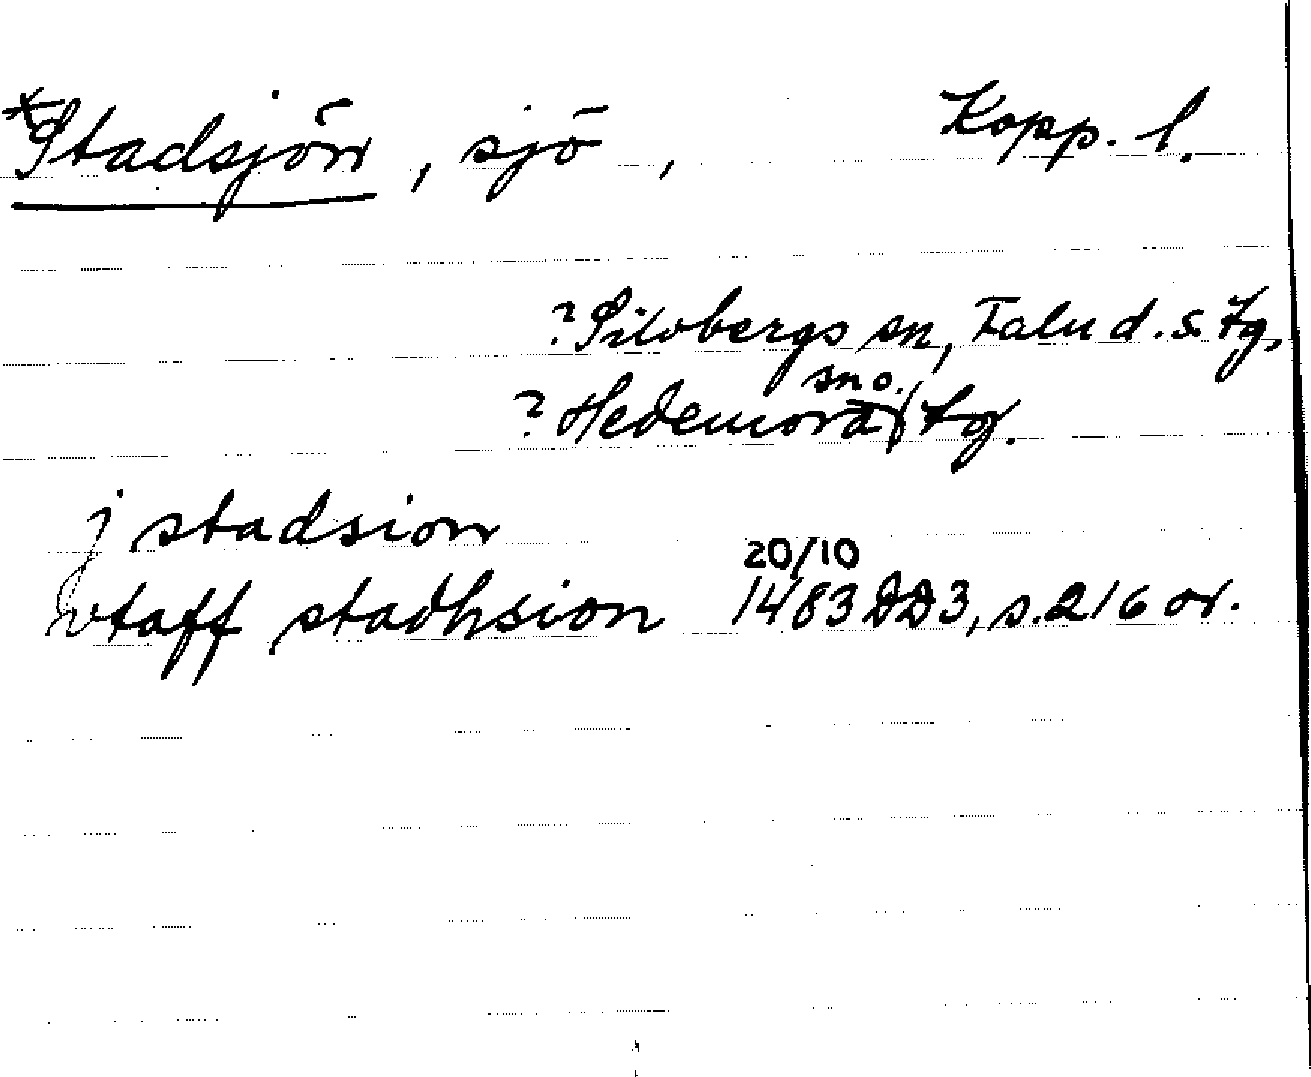 *Stadsjön, sjö, Kopp. l.
? Silvbergs sn, Falu d. s. tg,
? Hedemora sno. tg.
j stadsion
vtaff stadhsion 20/10 1483 DD3, s. 216 or.